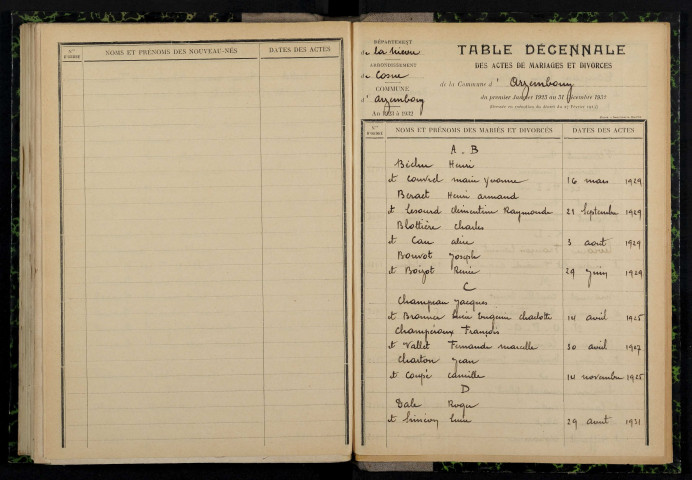 Nos D'ORDRE NOMS ET PRÉNOMS DES NOUVEAU-NÉS DATES DES ACTES
DÉPARTEMENT
de la Nièvre
ARRONDISSEMENT
de Cosne
COMMUNE
d' Arzembouy
An 1923 à 1932
TABLE DÉCENNALE
DES ACTES DE MARIAGES ET DIVORCES
de la Commune d' Arzembouy
du premier Janvier 1923 au 31 Décembre 1932
Nos D'ORDRE NOMS ET PRÉNOMS DES MARIÉS ET DIVORCÉS DATES DES ACTES
A. B
Henri
et marie Yvonne 16 mars 1929
Beraet Henri armand
et Lesourd clémentine Raymonde 21 Septembre 1929
Blottière Charles
et Cau alice 3 août 1929
Bouvot Joseph
et Boizot Renée 29 Juin 1929
C
Champeau Jacques
et Eugénie charlotte 14 avril 1925
Champéroux François
et Vallet Fernande marcelle 30 avril 1927
Charton Jean
et Coupé camille 14 novembre 1925
D
Dale Roger
et 29 1931